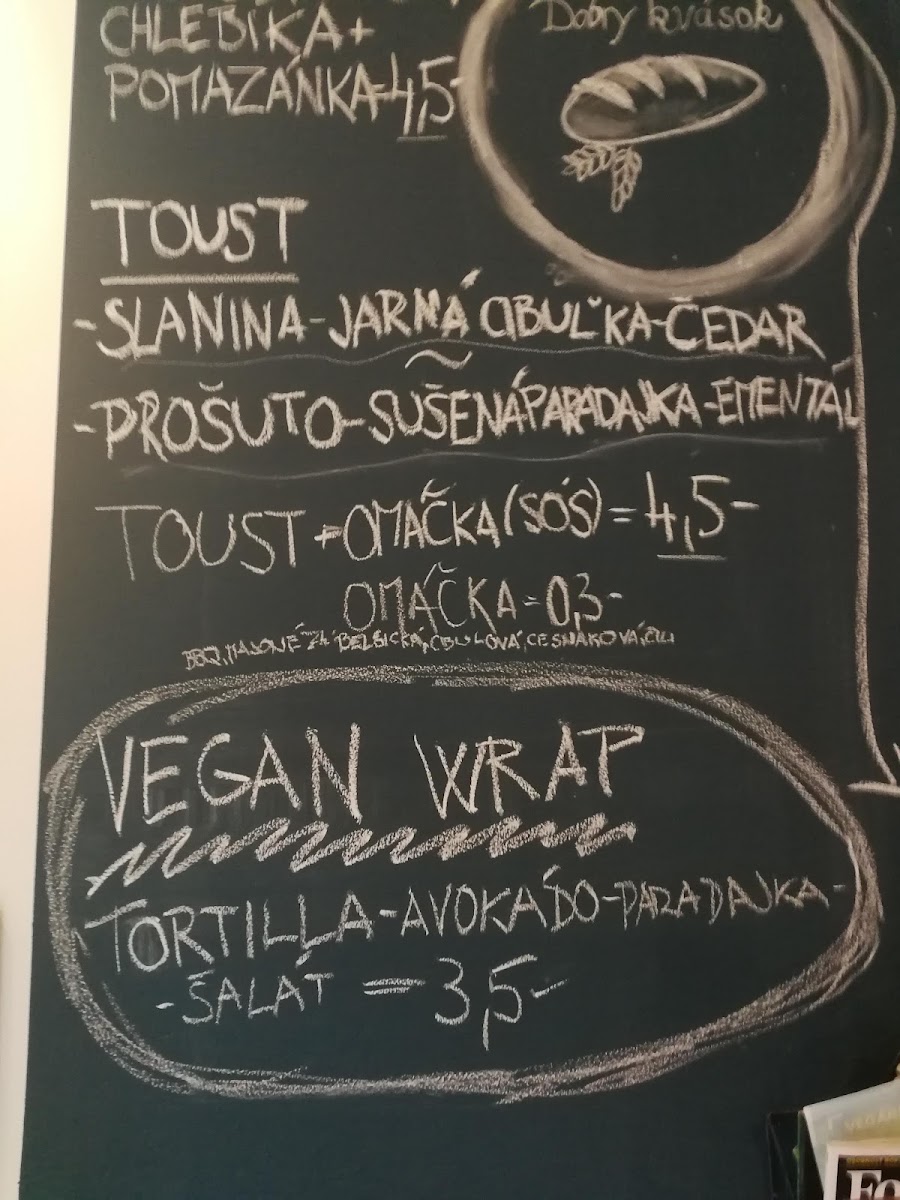 CHLEBÍKA+
POMAZÁNKA=4,5-
Dobrý kvások
TOUST
-SLANINA-JARNÁ CIBUĽKA-ČEDAR
~
-PROŠUTO-SUŠENÁ PARADAJKA-EMENTÁL
TOUST +OMÁČKA(SÓS)=4,5-
OMÁČKA=0,3-
BBQ, MAJONÉZA, BELGICKÁ, CIBULOVÁ, CESNAKOVÁ, ČILI
VEGAN WRAP
TORTILLA-AVOKÁDO-PARADAJKA-
-ŠALÁT = 3,5-
VEGÁN